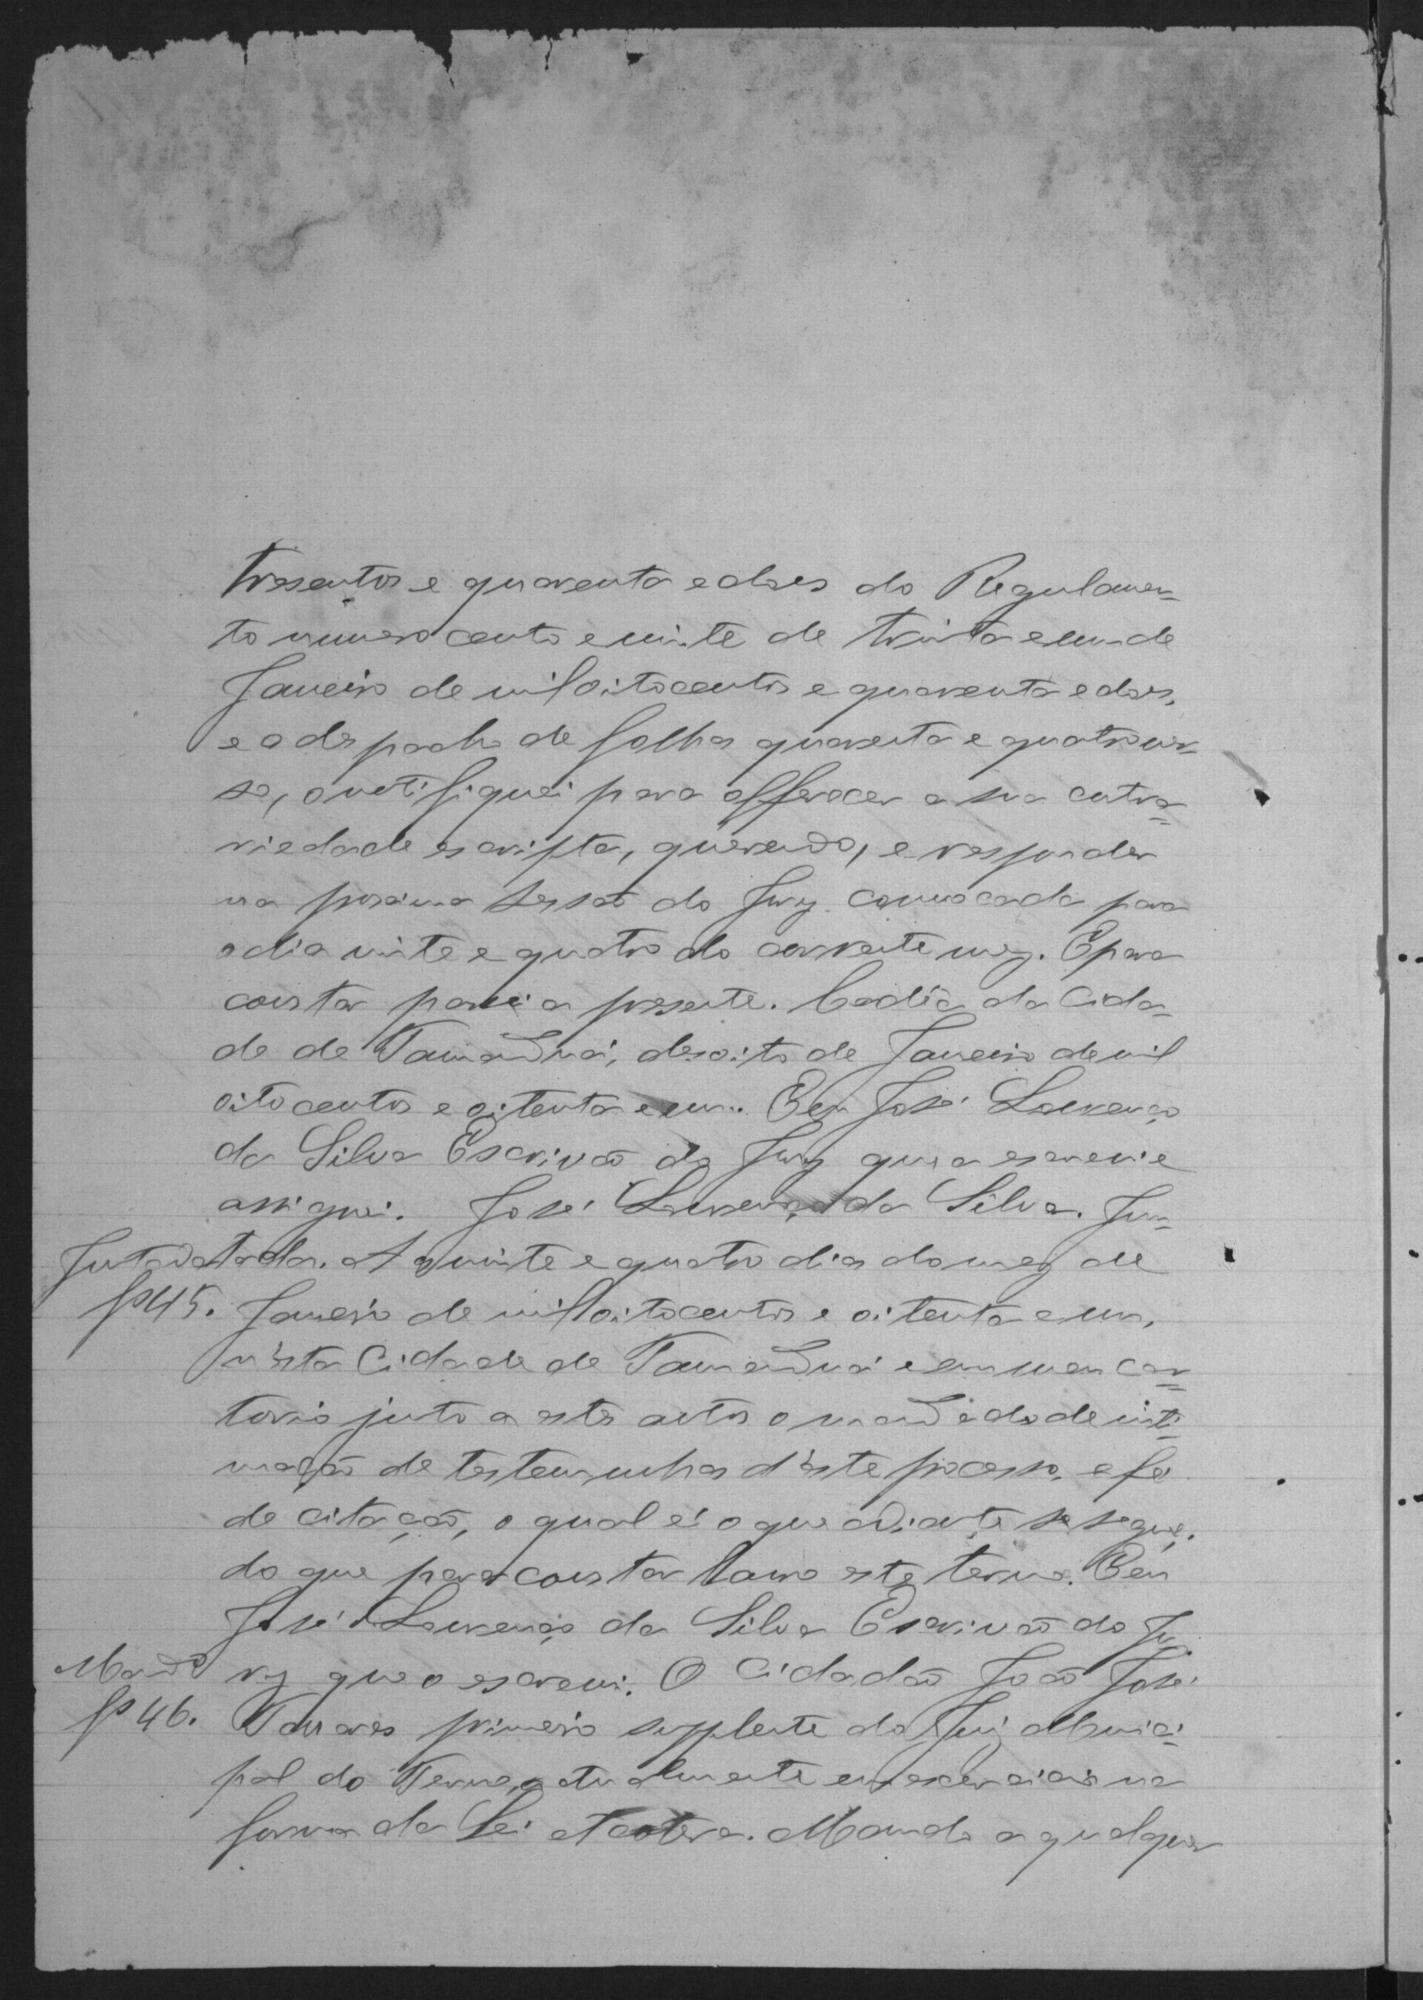 tresentos e quarenta e dois do Regulamen=
to numero cento e vinte de trinta e um de
Janeiro de mil oitocentos e quarenta e dois,
e o despacho de folhas quarenta e quatro ver=
so, o notifiquei para offerecer a sua contra=
riedade escripta, querendo, e responder
na proxima sessão do Jury convocada para
o dia vinte e quatro do corrente mez. E para
constar passei a presente. Cadêa da Cida=
de de Tamanduá, desoito de Janeiro de mil
oito centos e oitenta e um. Eu José Lourenço
da Silva Escrivão do Jury que a escrevi e
assignei. José Lourenço da Silva. Jun=
Juntada tada. Aos vinte e quatro dias do mez de
fs 45. Janeiro de mil oitocentos e oitenta e um,
n'esta Cidade de Tamanduá e em meu car=
torio junto a estes autos o mandado de inti=
mação de testemunhas d'este processo, e fé
de citação, o qual é o que adiante se segue.
do que para constar lavro este termo. Eu
José Lourenço da Silva Escrivão do Ju=
Mando ry que o escrevi. O Cidadão João José
fs 46. Tavares primeiro supplente do Juiz Munici=
pal do Termo, actualmente em exercicio na
forma da Lei etcetera. Mando a qualquer